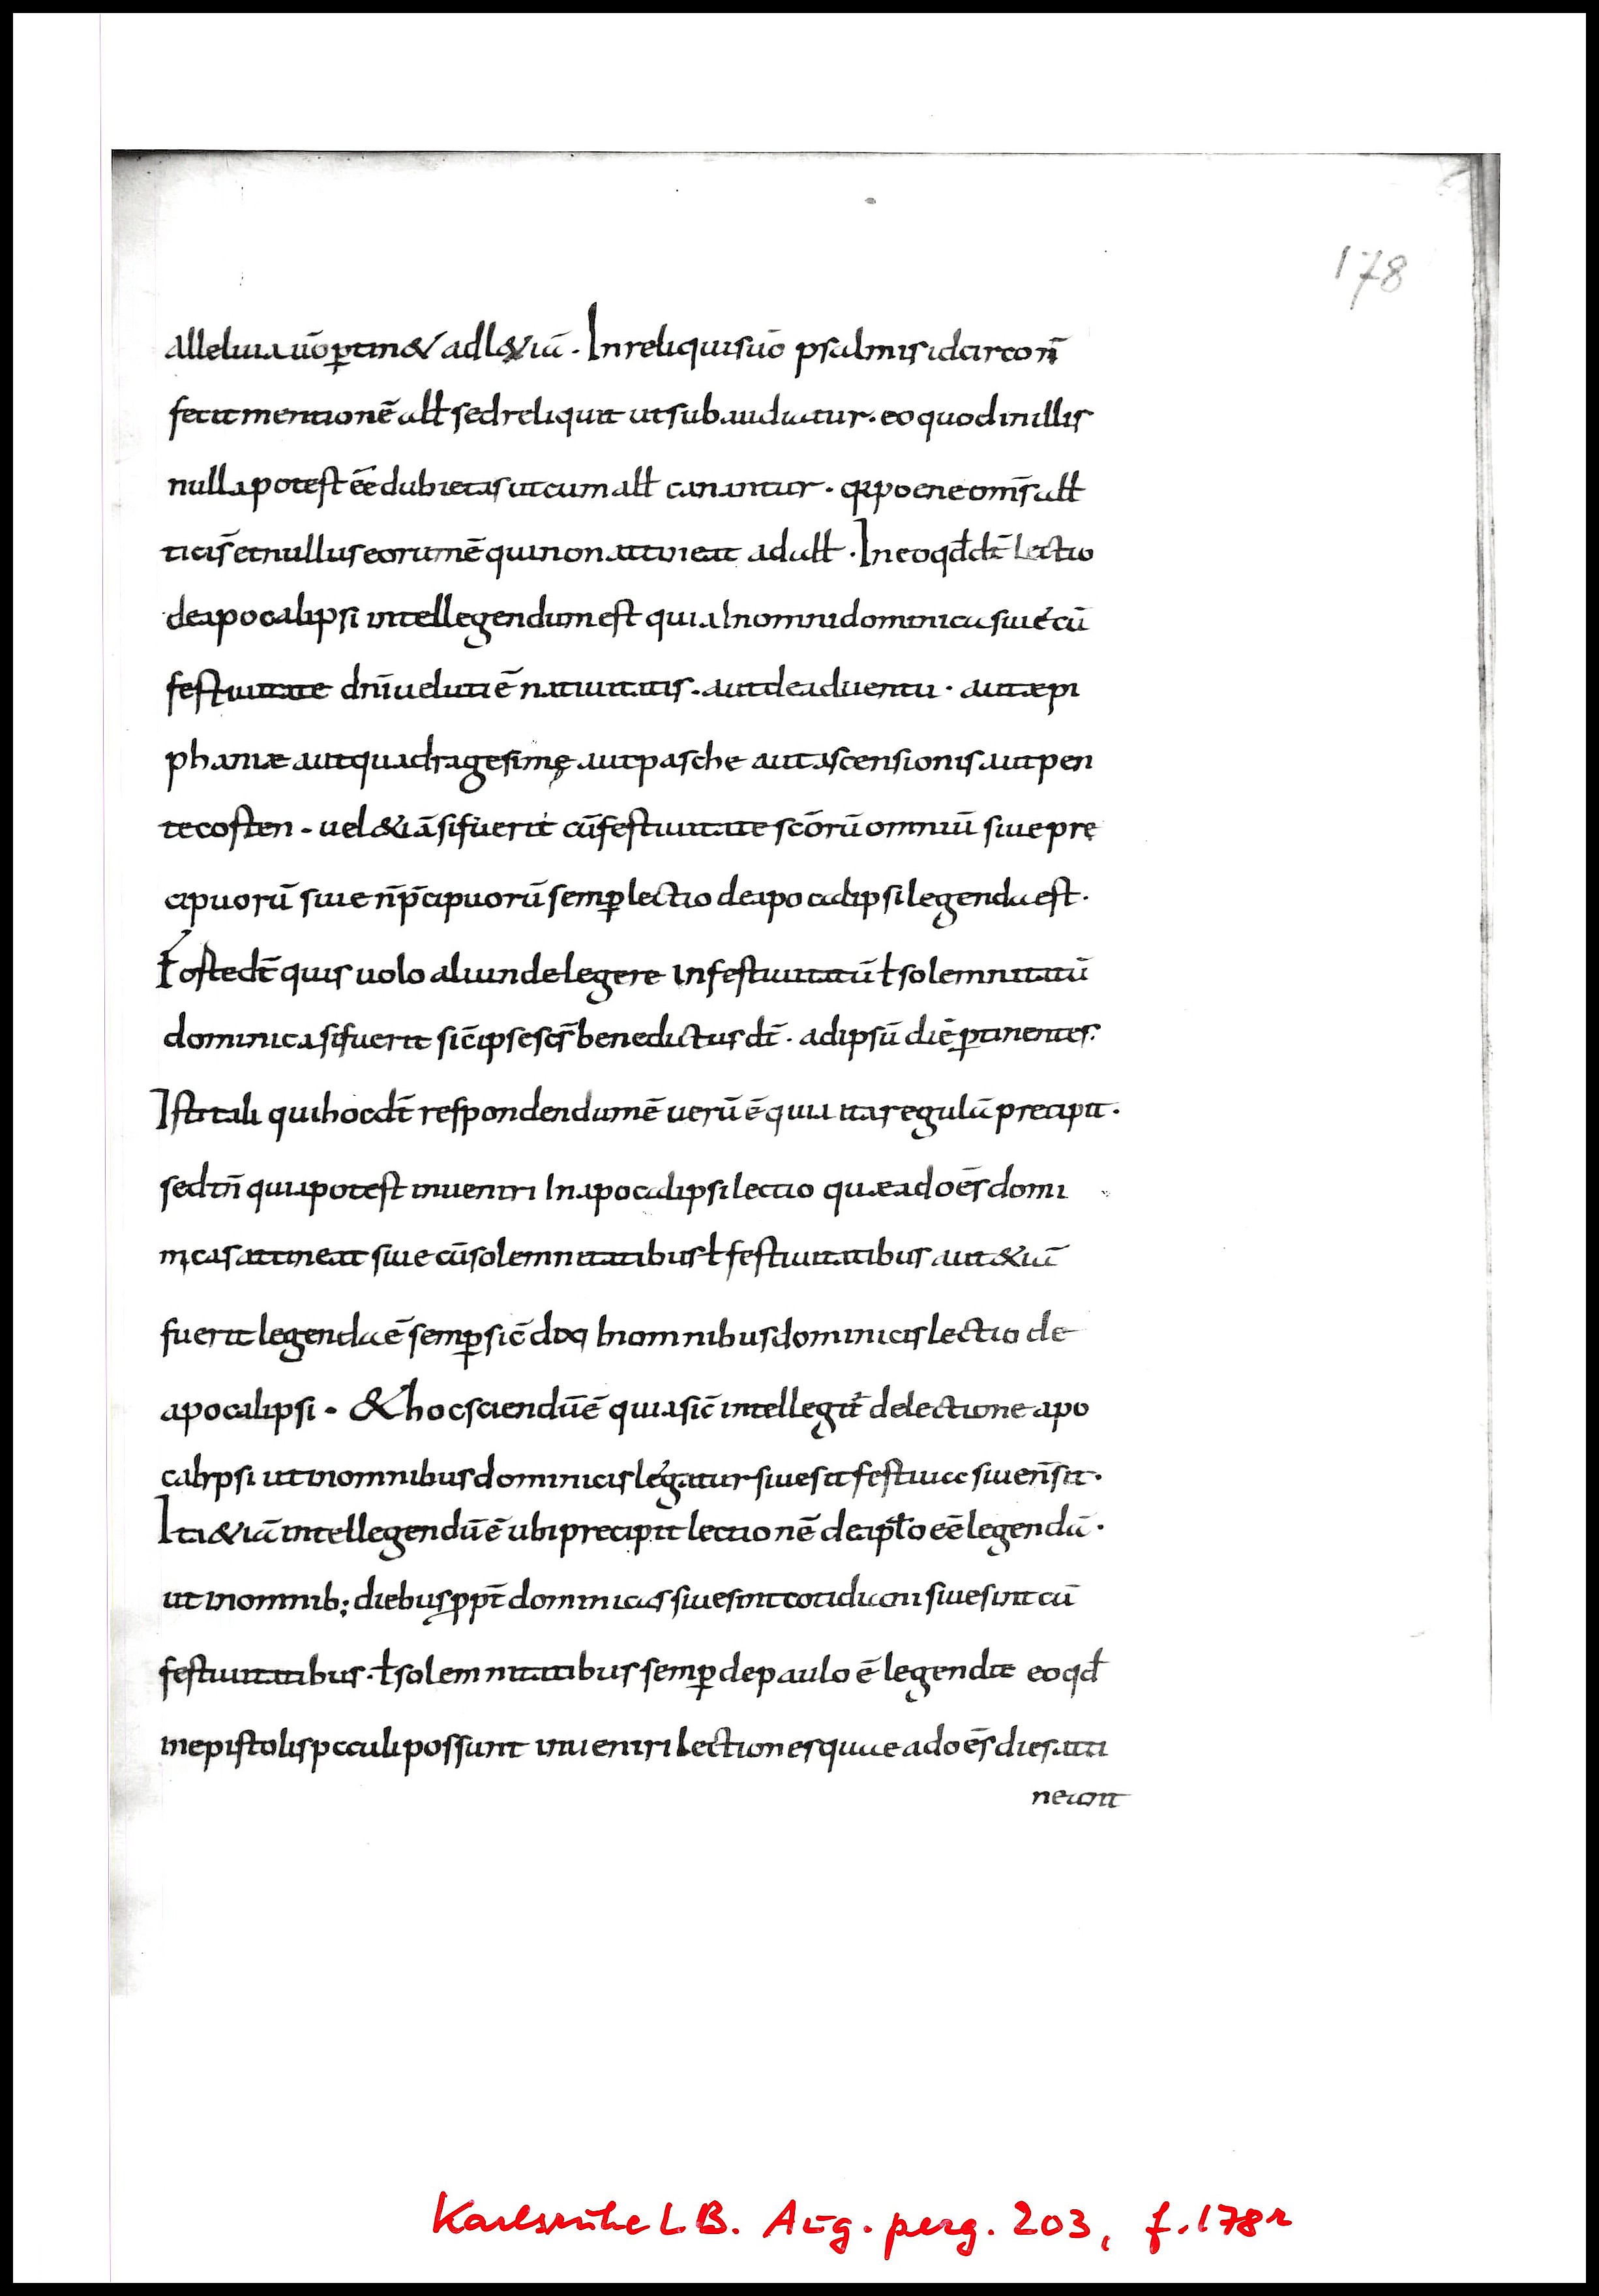 178
alleluia uō ptin& ad l&iā. In reliquis uō psalmis idcirco n̄
fecit mentionē all̄ sed reliquit ut subaudiatur. eo quod in illis
nulla potest eē dubietas ut cum all̄ canantur. qr poene om̄s all̄
ticis̄ et nullus eorum ē qui non attineat ad all̄. In eo qd̄ dt̄ lectio
de apocalipsi intellegendum est quia In omni dominica siue cū
festiuitate dn̄i ueluti ē natiuitatis. aut de aduentu. aut æpi
phaniæ aut quadragesimę aut pasche aut ascensionis aut pen
tecosten. uel &iā si fuerit cū festiuitate scōrū omniū siue prę
cipuorū siue n̄ p̄cipuorū semp lectio de apocalipsi legenda est.
Potest edt̄ quis uolo aliunde legere In festiuitatū ł solemnitatū
dominica si fuerit sic̄ ipse scs̄ benedictus dt̄. ad ipsū diē ptinentes.
Isti tali qui hoc dt̄ respondendum ē uerū ē quia ita regulā precipit.
sed tn̄ quia potest inueniri In apocalipsi lectio quæ ad oēs domi
nicas attineat siue cū solemnitatibus ł festiuitatibus aut &iā
fuerit legenda ē semp sic̄ dixi In omnibus dominicis lectio de
apocalipsi. & hoc sciendū ē quia sic̄ intellegit̄ de lectione apo
calipsi ut in omnibus dominicis legatur siue sit festiua siue n̄ sit.
Ita &iā intellegendū ē ubi precipit lectionē de apl̄o eē legendā.
ut in omnib; diebus ppt̄ dominicas siue sint cotidiani siue sint cū
festiuitatibus. ł solemnitatibus semp de paulo ē legendū eo qd̄
in epistolis pauli possunt inueniri lectiones quae ad oēs dies atti
neant
Karlsruhe L.B. Aug. perg. 203, f. 178r